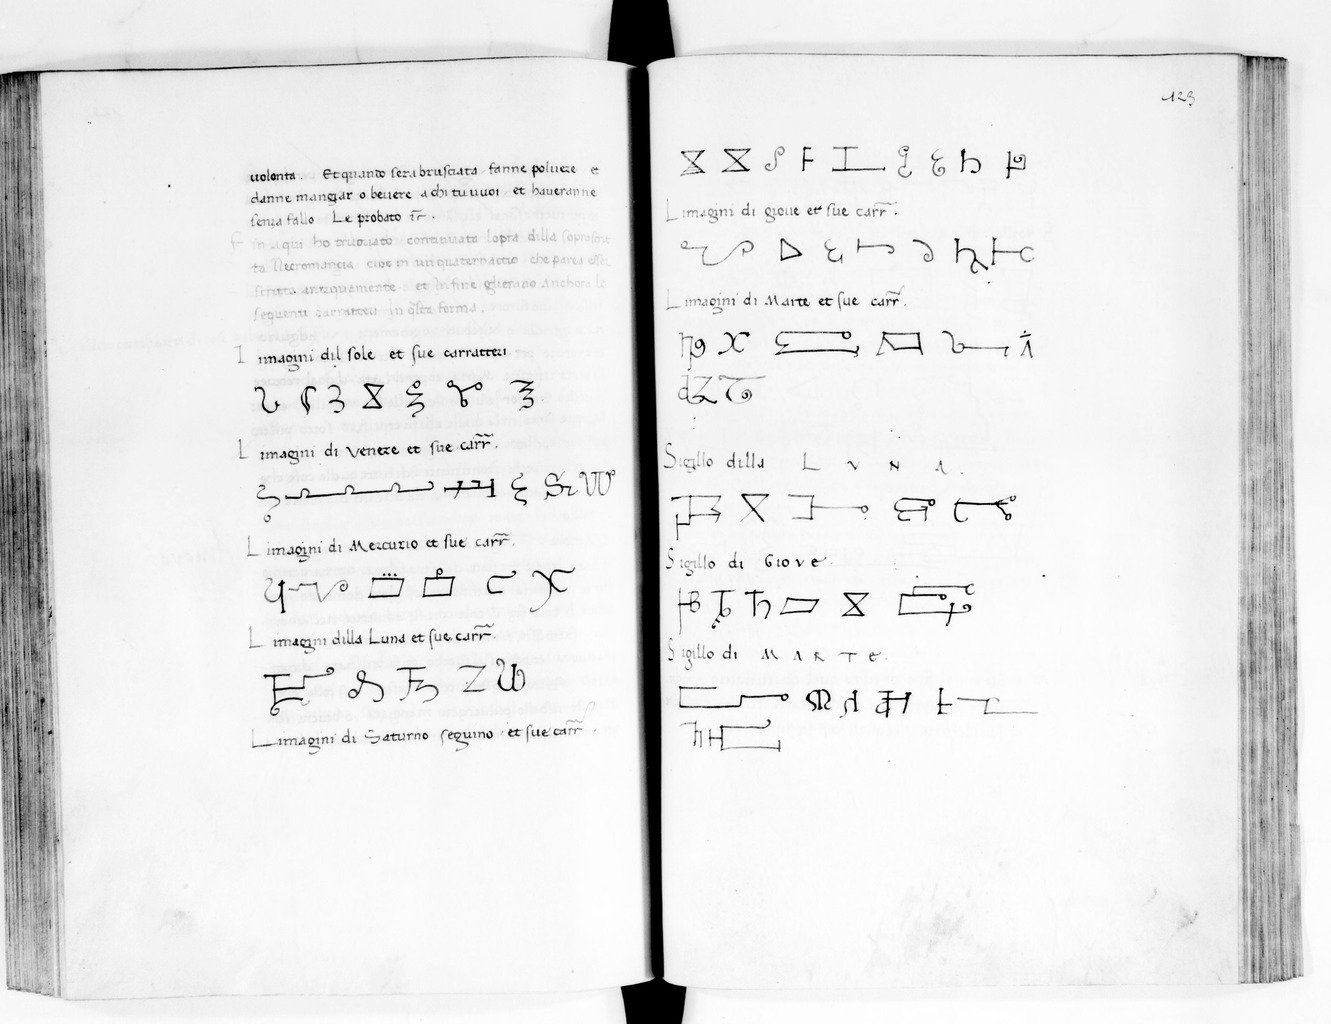 uolonta. Et quando sera brusciata fanne poluere et
danne mangiar o beuere a chi tu uuoi et haueranne
senza fallo Le probato
F in aqui ho truouato continuata lopra della soprascri
ta Necromancia cioe in un quaternaccio che parea esser
scritta antiquamente et in fine glierano Anchora le
sequenti carratteri in q̃sta forma.
L imagini dil sole et sue carratteri
L imagini di venere et sue carr̃.
L imagini di Mercurio et sue carr̃.
L imagini dilla Luna et sue carr̃.
L imagini di Saturno seguino et sue carr̃.
123
L imagini di gioue et sue carr̃.
L imagini di Marte et sue carr̃.
Sigillo dilla L V N A.
Sigillo di Giove.
Sigillo di M A R T E.